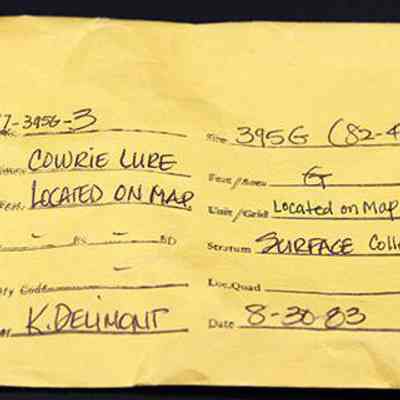 7-395G-3
COWRIE LURE
LOCATED ON MAP
- BS - BD
-
K. DELIMONT
Site 395G (82-4
Feat/Area G
Unit/Grid Located on Map
Stratum SURFACE Coll
Loc.Quad
Date 8-30-83